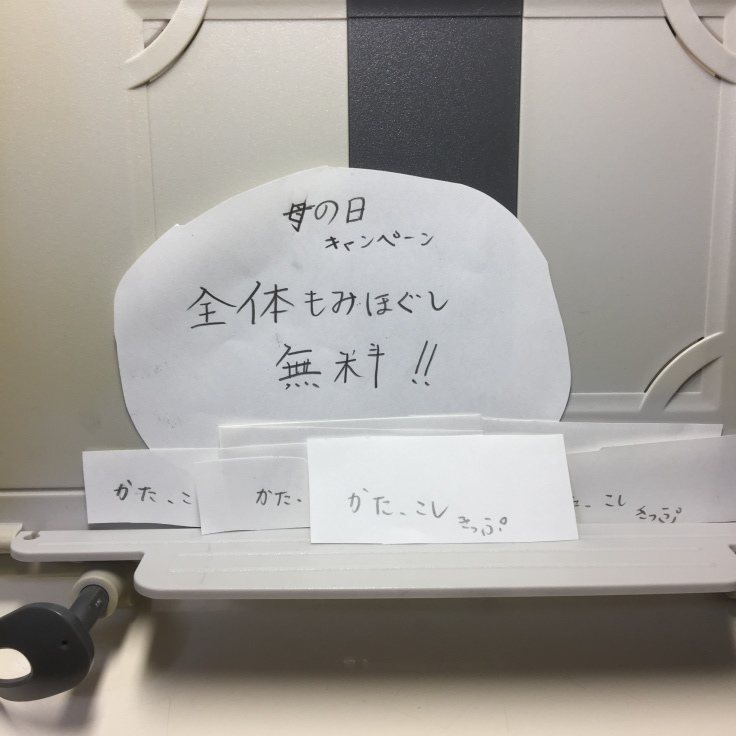 母の日
キャンペーン
全体もみほぐし
無料!!
かた、こ
かた、
かた、こし
きっぷ
た、こし
きっぷ